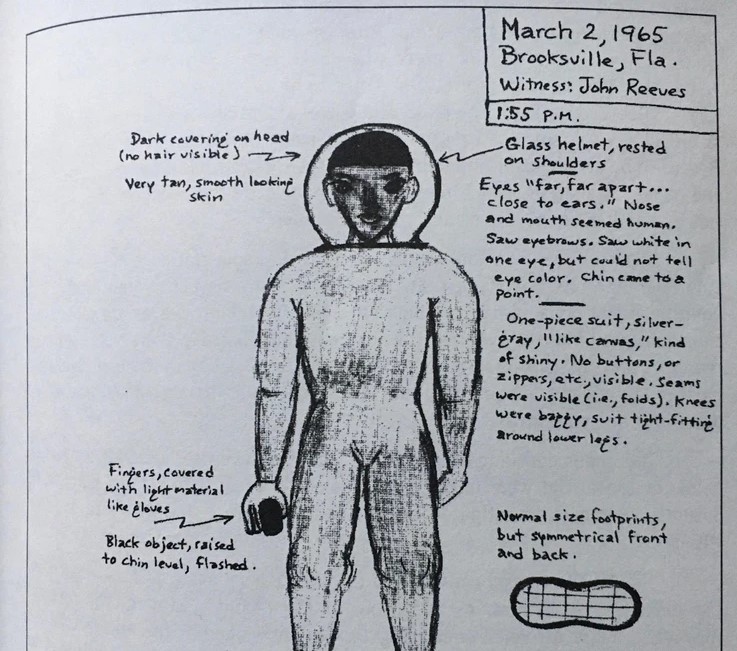 March 2, 1965
Brooksville, Fla.
Witness: John Reeves
1:55 P.M.
Dark covering on head
(no hair visible)
Very tan, smooth looking
skin
Glass helmet, rested
on shoulders
Eyes "far, far apart...
close to ears." Nose
and mouth seemed human.
Saw eyebrows. Saw white in
one eye, but could not tell
eye color. Chin came to a
point.
One-piece suit, silver-
gray, "like canvas," kind
of shiny. No buttons, or
zippers, etc., visible. Seams
were visible (i.e., folds). Knees
were baggy, suit tight-fitting
around lower legs.
Fingers, covered
with light material
like gloves
Black object, raised
to chin level, flashed.
Normal size footprints,
but symmetrical front
and back.